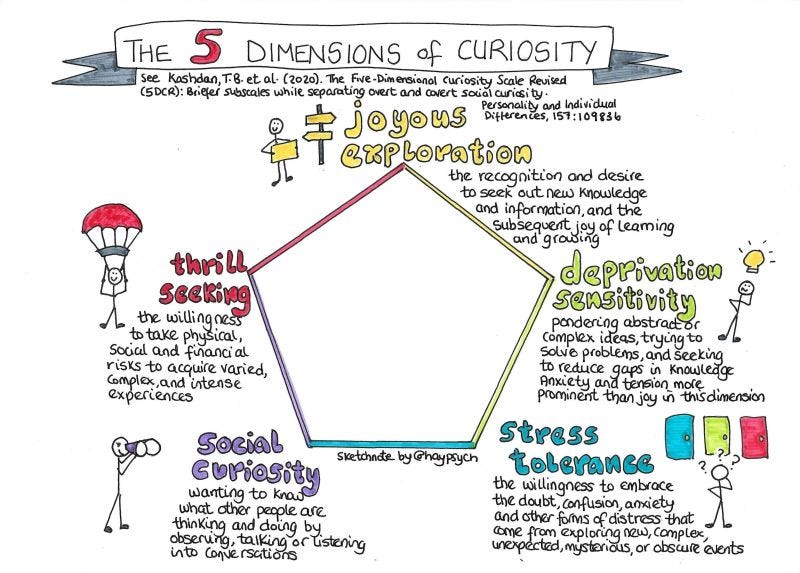 THE 5 DIMENSIONS of CURIOSITY
See Kashdan, T.B. et. al. (2020). The Five-Dimensional Curiosity Scale Revised
(5DCR): Briefer subscales while separating overt and covert social curiosity.
Personality and Individual
Differences, 157:109836
joyous
exploration
the recognition and desire
to seek out new knowledge
and information, and the
subsequent joy of learning
and growing
thrill
seeking
the willingness
to take physical,
social and financial
risks to acquire varied,
complex, and intense
experiences
deprivation
sensitivity
pondering abstract or
complex ideas, trying to
solve problems, and seeking
to reduce gaps in knowledge
Anxiety and tension more
prominent than joy in this dimension
social
curiosity
wanting to know
what other people are
thinking and doing by
observing, talking or listening
into conversations
sketchnote by @haypsych
stress
tolerance
the willingness to embrace
the doubt, confusion, anxiety
and other forms of distress that
come from exploring new, complex,
unexpected, mysterious, or obscure events
? ? ?